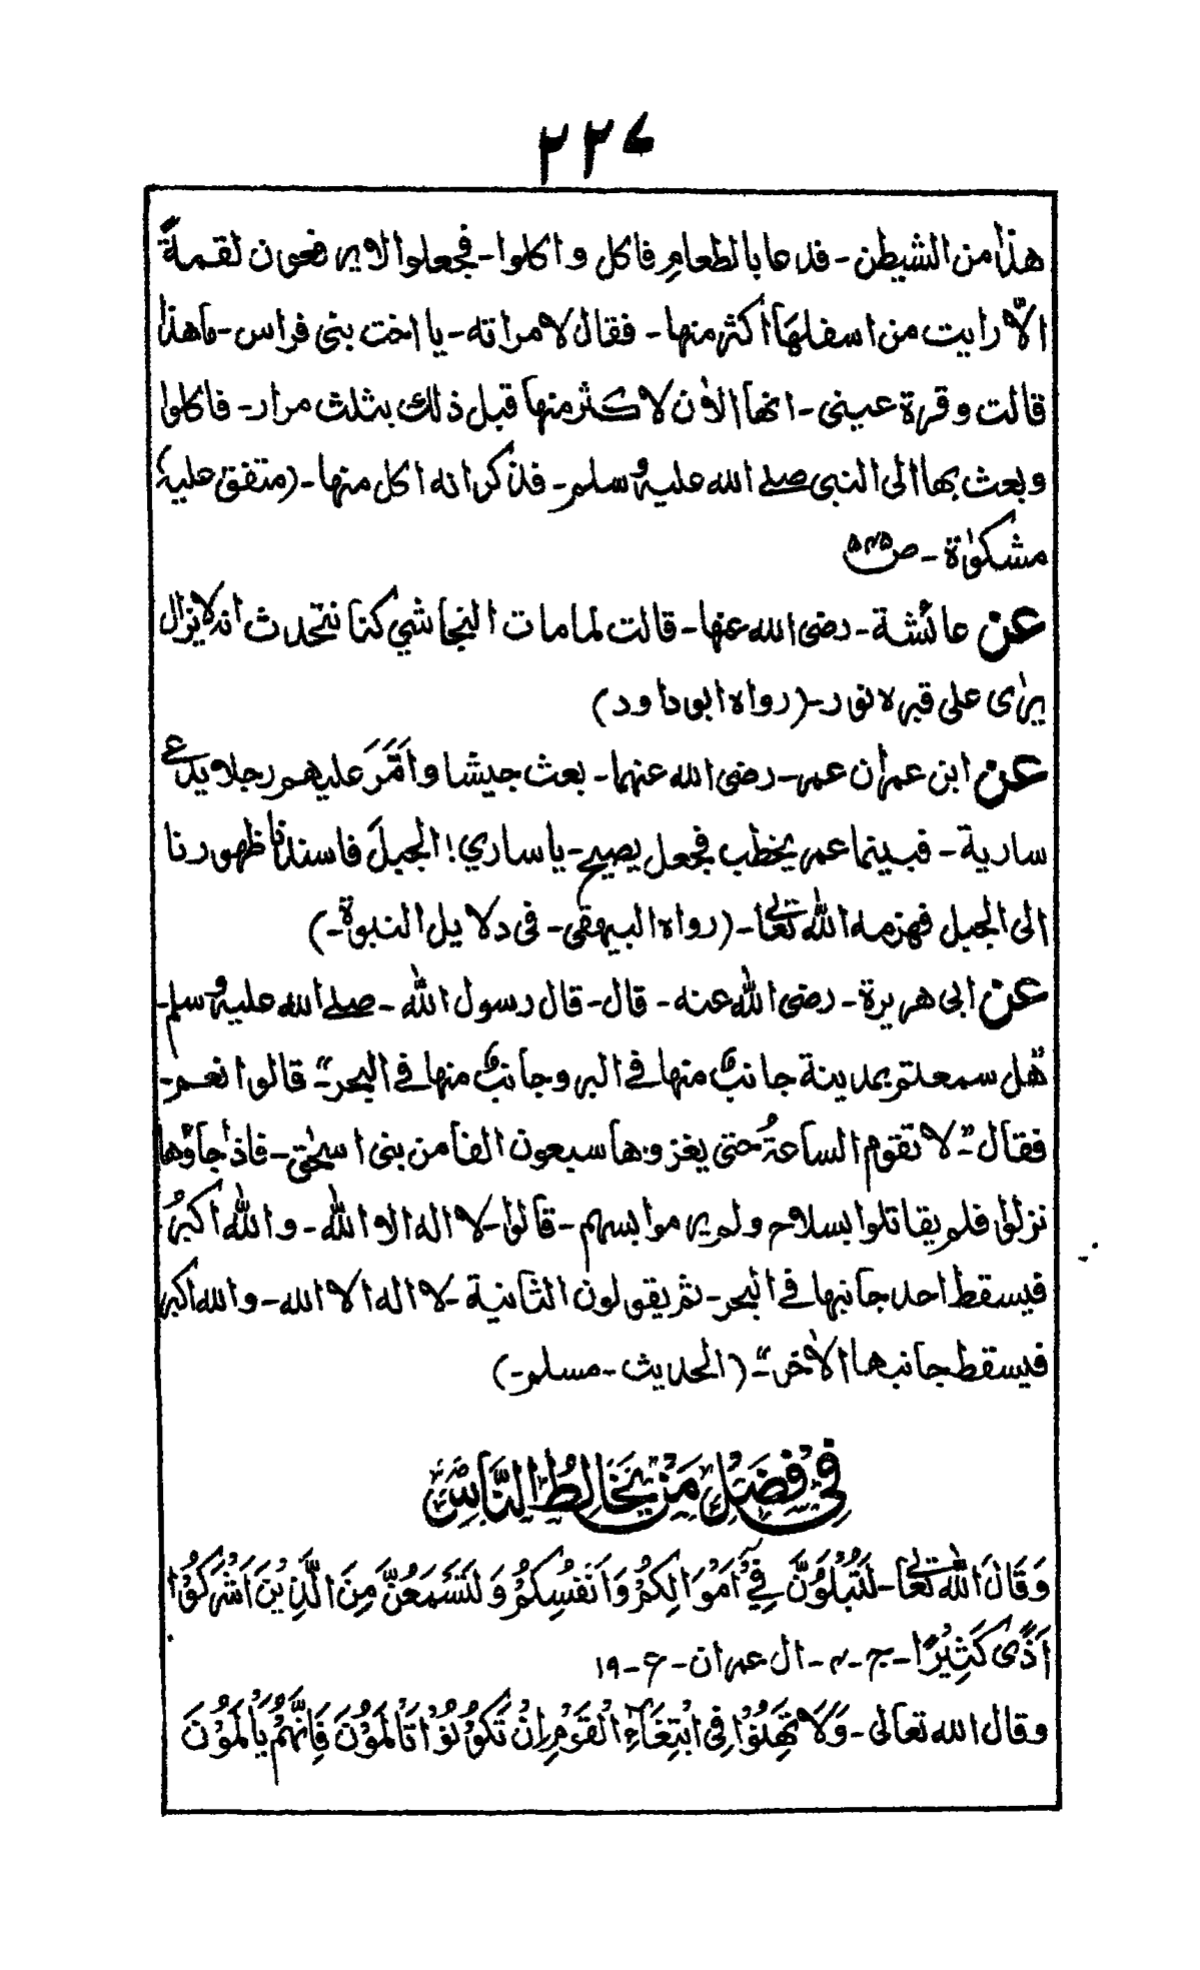 ۲۲۷
هذا من الشيطن۔ فدعا بالطعامِ فاكل واكلوا۔ فجعلوا لا يرفعون لقمةً
الّا رايت من اسفلهَا اكثر منها۔ فقال لامراته۔ يا اخت بنى فراس۔ ماهذا
قالت وقرة عينى۔ انها الاٰن لاكثر منها قبل ذلك بثلث مرار۔ فاكلوا
وبعث بها الى النبى صلے الله عليه وسلم۔ فذكر انه اكل منها۔ (متفق عليہ)
مشكوٰة۔ ص۵۴۵
عن عائشة۔ رضى الله عنها۔ قالت لما مات النجاشي كنا نتحدث انه لا يزال
يرٰى على قبره نور۔ (رواه ابو داود)
عن ابن عمر ان عمر۔ رضى الله عنهما۔ بعث جيشا واَمَّرَ عليهم رجلا يدعٰے
سارية۔ فبينما عمر يخطب فجعل يصيح۔ يا ساري! الجبلَ فاسندنا ظهورنا
الى الجبل فهزمه الله تعالٰى۔ (رواه البيهقى۔ فى دلايل النبوة۔)
عن ابى هريرة۔ رضى الله عنه۔ قال۔ قال رسول الله۔ صلے الله عليه وسلم۔
"هل سمعتم بمدينة جانبٌ منها فے البر وجانبٌ منها فے البحر"۔ قالوا نعم۔
فقال۔ "لا تقوم الساعةُ حتى يغزوها سبعون الفا من بنى اسحٰق۔ فاذا جاؤها
نزلوا فلم يقاتلوا بسلاح ولم يرموا بسهم۔ قالوا۔ لا اله الا الله۔ والله اكبرُ
فيسقط احد جانبها فے البحر۔ ثم يقولون الثانية۔ لا اله الا الله۔ والله اكبر
فيسقط جانبها الاٰخر"۔ (الحديث۔ مسلم۔)
فِیْ فَضْلِ مَنْ يُّخَالِطُ النَّاسَ
وَقَالَ اللّٰهُ تَعَالٰى۔ لَتُبْلَوُنَّ فِيْٓ اَمْوَالِكُمْ وَاَنْفُسِكُمْ وَلَتَسْمَعُنَّ مِنَ الَّذِيْنَ اَشْرَكُوْا
اَذًى كَثِيْرًا۔ ج۔ ۴۔ ال عمران۔ ع۔ ۱۹
وقال الله تعالى۔ وَلَا تَهِنُوْا فِى ابْتِغَآءِ الْقَوْمِ اِنْ تَكُوْنُوْا تَاْلَمُوْنَ فَاِنَّهُمْ يَاْلَمُوْنَ